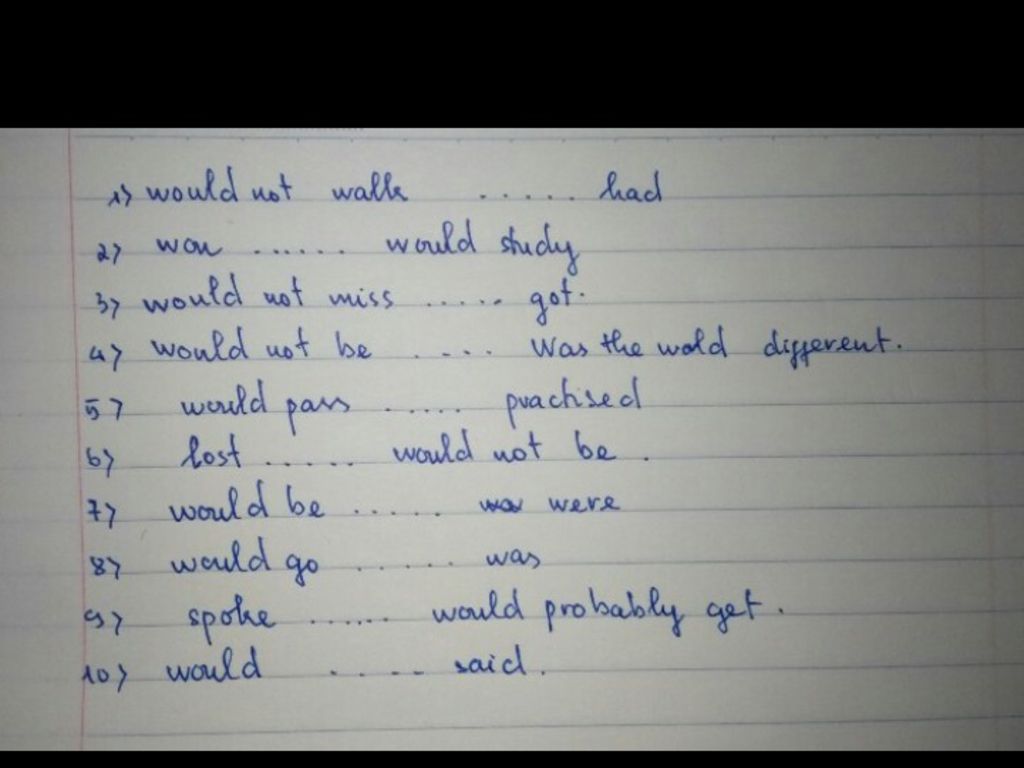 1) would not walk ..... had
2) won ...... would study
3) would not miss ..... got.
4) would not be .... Was the wold different.
5) would pass ..... practised
6) lost ..... would not be .
7) would be ..... was were
8) would go ...... was
9) spoke ...... would probably get .
10) would .... said .